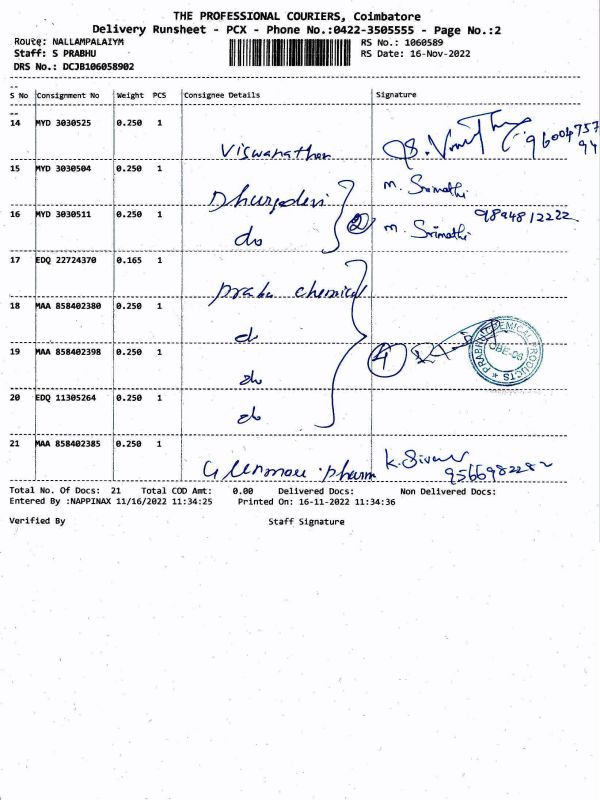 THE PROFESSIONAL COURIERS, Coimbatore
Delivery Runsheet - PCX - Phone No.:0422-3505555 - Page No.:2
Route: NALLAMPALAIYM RS No.: 1060589
Staff: S PRABHU RS Date: 16-Nov-2022
DRS No.: DCJB106058902
S No Consignment No Weight PCS Consignee Details Signature
14 MYD 3030525 0.250 1
Viswanathan
15 MYD 3030504 0.250 1 m. Srimathi
Dhurgadevi
16 MYD 3030511 0.250 1 9894812222
do 2 m. Srimathi
17 EDQ 22724370 0.165 1
prabu chemical
18 MAA 858402380 0.250 1
do
19 MAA 858402398 0.250 1 4
do
PRABHU CHEMICAL PRODUCTS
CBE-06
20 EDQ 11305264 0.250 1
do
21 MAA 858402385 0.250 1 K. Sivam
pharm 9566982282
Total No. Of Docs: 21 Total COD Amt: 0.00 Delivered Docs: Non Delivered Docs:
Entered By :NAPPINAX 11/16/2022 11:34:25 Printed On: 16-11-2022 11:34:36
Verified By Staff Signature